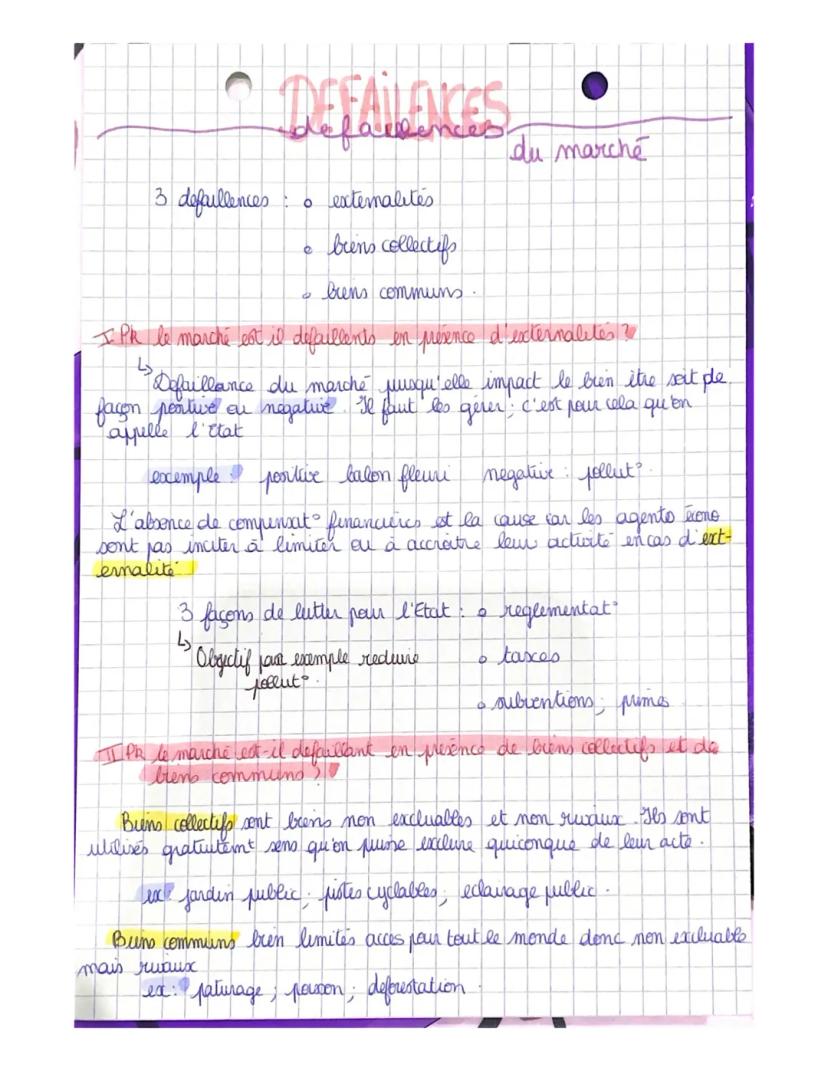 DEFAILENCES
defaillences
du marché
3 defaillences : o externalités
o biens collectifs
o biens communs.
I Pk le marché est il defaillents en présence d'externalités ?
↳ Defaillance du marché puisqu'elle impact le bien être soit de
façon positive ou negative. Il faut les gérer ; c'est pour cela qu'on
appelle l'état
exemple : positive balon fleuri negative : pollut°.
L'absence de compensat° financières est la cause car les agents écono
sont pas inciter à limiter ou à accroitre leur activité en cas d'ext-
ernalité
3 façons de lutter pour l'Etat : o reglementat°
↳ Objectif par exemple reduire o taxes
pollut°.
o subventions ; primes
II Pk le marché est-il defaillant en présence de biens collectifs et de
biens communs ?
Biens collectifs sont biens non excluables et non rivaux. Ils sont
utilisés gratuitemt sans qu'on puisse exclure quiconque de leur acte.
ex : jardin public ; pistes cyclables ; eclairage public.
Biens communs bien limités acces pour tout le monde donc non excluable
mais rivaux
ex : paturage ; poisson ; deforestation.